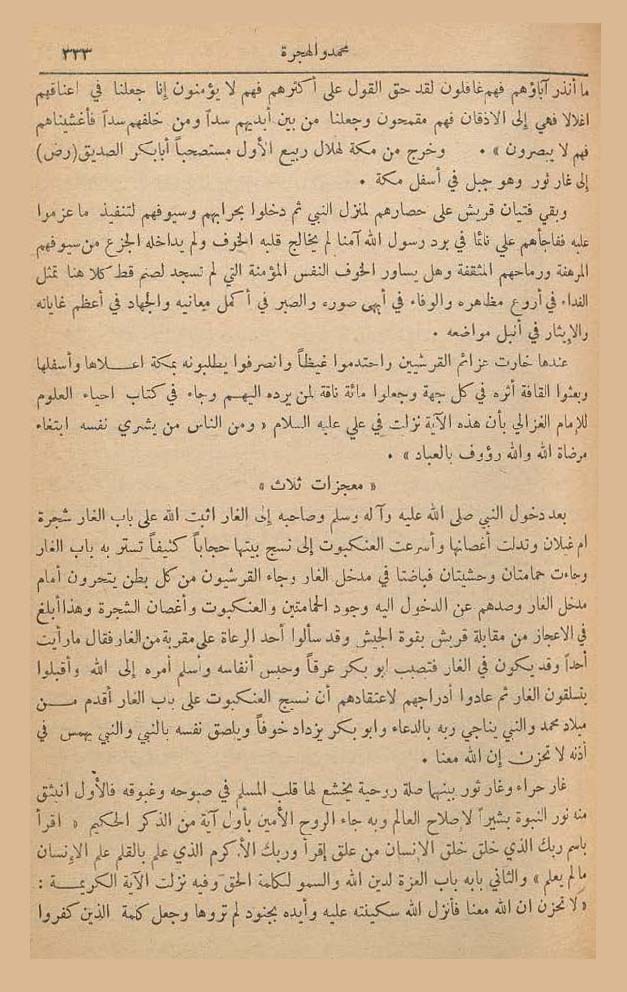 محمد والهجرة ٣٣٣
ما أنذر آباؤهم فهم غافلون لقد حق القول على أكثرهم فهم لا يؤمنون إنا جعلنا في اعناقهم
اغلالا فهي إلى الاذقان فهم مقمحون وجعلنا من بين أيديهم سداً ومن خلفهم سداً فأغشيناهم
فهم لا يبصرون » . وخرج من مكة لهلال ربيع الأول مستصحباً أبابكر الصديق (رض)
إلى غار ثور وهو جبل في أسفل مكة .
وبقي فتيان قريش على حصارهم لمنزل النبي ثم دخلوا بحرابهم وسيوفهم لتنفيذ ما عزموا
عليه ففاجأهم علي نائماً في برد رسول الله آمنا لم يخالج قلبه الخوف ولم يداخله الجزع من سيوفهم
المرهفة ورماحهم المثقفة وهل يساور الخوف النفس المؤمنة التي لم تسجد لصنم قط كلا هنا تمثل
الفداء في أروع مظاهره والوفاء في أبهى صوره والصبر في أكمل معانيه والجهاد في أعظم غاياته
والإيثار في أنبل مواضعه .
عندها خارت عزائم القرشيين واحتدموا غيظاً وانصرفوا يطلبونه بمكة اعلاها وأسفلها
وبعثوا القافة أثره في كل جهة وجعلوا مائة ناقة لمن يرده اليهم وجاء في كتاب احياء العلوم
للإمام الغزالي بأن هذه الآية نزلت في علي عليه السلام « ومن الناس من يشري نفسه ابتغاء
مرضاة الله والله رؤوف بالعباد » .
« معجزات ثلاث »
بعد دخول النبي صلى الله عليه وآله وسلم وصاحبه إلى الغار اثبت الله على باب الغار شجرة
ام غيلان وتدلت أغصانها وأسرعت العنكبوت إلى نسج بيتها حجاباً كثيفاً تستر به باب الغار
وجاءت حمامتان وحشيتان فباضتا في مدخل الغار وجاء القرشيون من كل بطن يتحرون أمام
مدخل الغار وصدهم عن الدخول اليه وجود الحمامتين والعنكبوت وأغصان الشجرة وهذا أبلغ
في الاعجاز من مقابلة قريش بقوة الجيش وقد سألوا أحد الرعاة على مقربة من الغار فقال ما رأيت
أحداً وقد يكون في الغار فتصبب ابو بكر عرقاً وحبس أنفاسه وأسلم أمره إلى الله وأقبلوا
يتسلقون الغار ثم عادوا أدراجهم لاعتقادهم أن نسيج العنكبوت على باب الغار أقدم مــن
ميلاد محمد والنبي يناجي ربه بالدعاء وابو بكر يزداد خوفاً ويلصق نفسه بالنبي والنبي يهمس في
أذنه لا تحزن إن الله معنا .
غار حراء وغار ثور بينهما صلة روحية يخشع لها قلب المسلم في صبوحه وغبوقه فالأول انبثق
منه نور النبوة بشيراً لإصلاح العالم وبه جاء الروح الأمين بأول آية من الذكر الحكيم « اقرأ
باسم ربك الذي خلق خلق الإنسان من علق إقرأ وربك الأكرم الذي علم بالقلم علم الإنسان
مالم يعلم » والثاني بابه باب العزة لدين الله والسمو لكلمة الحق وفيه نزلت الآية الكريمــة :
« لا تحزن ان الله معنا فأنزل الله سكينته عليه وأيده بجنود لم تروها وجعل كلمة الذين كفروا